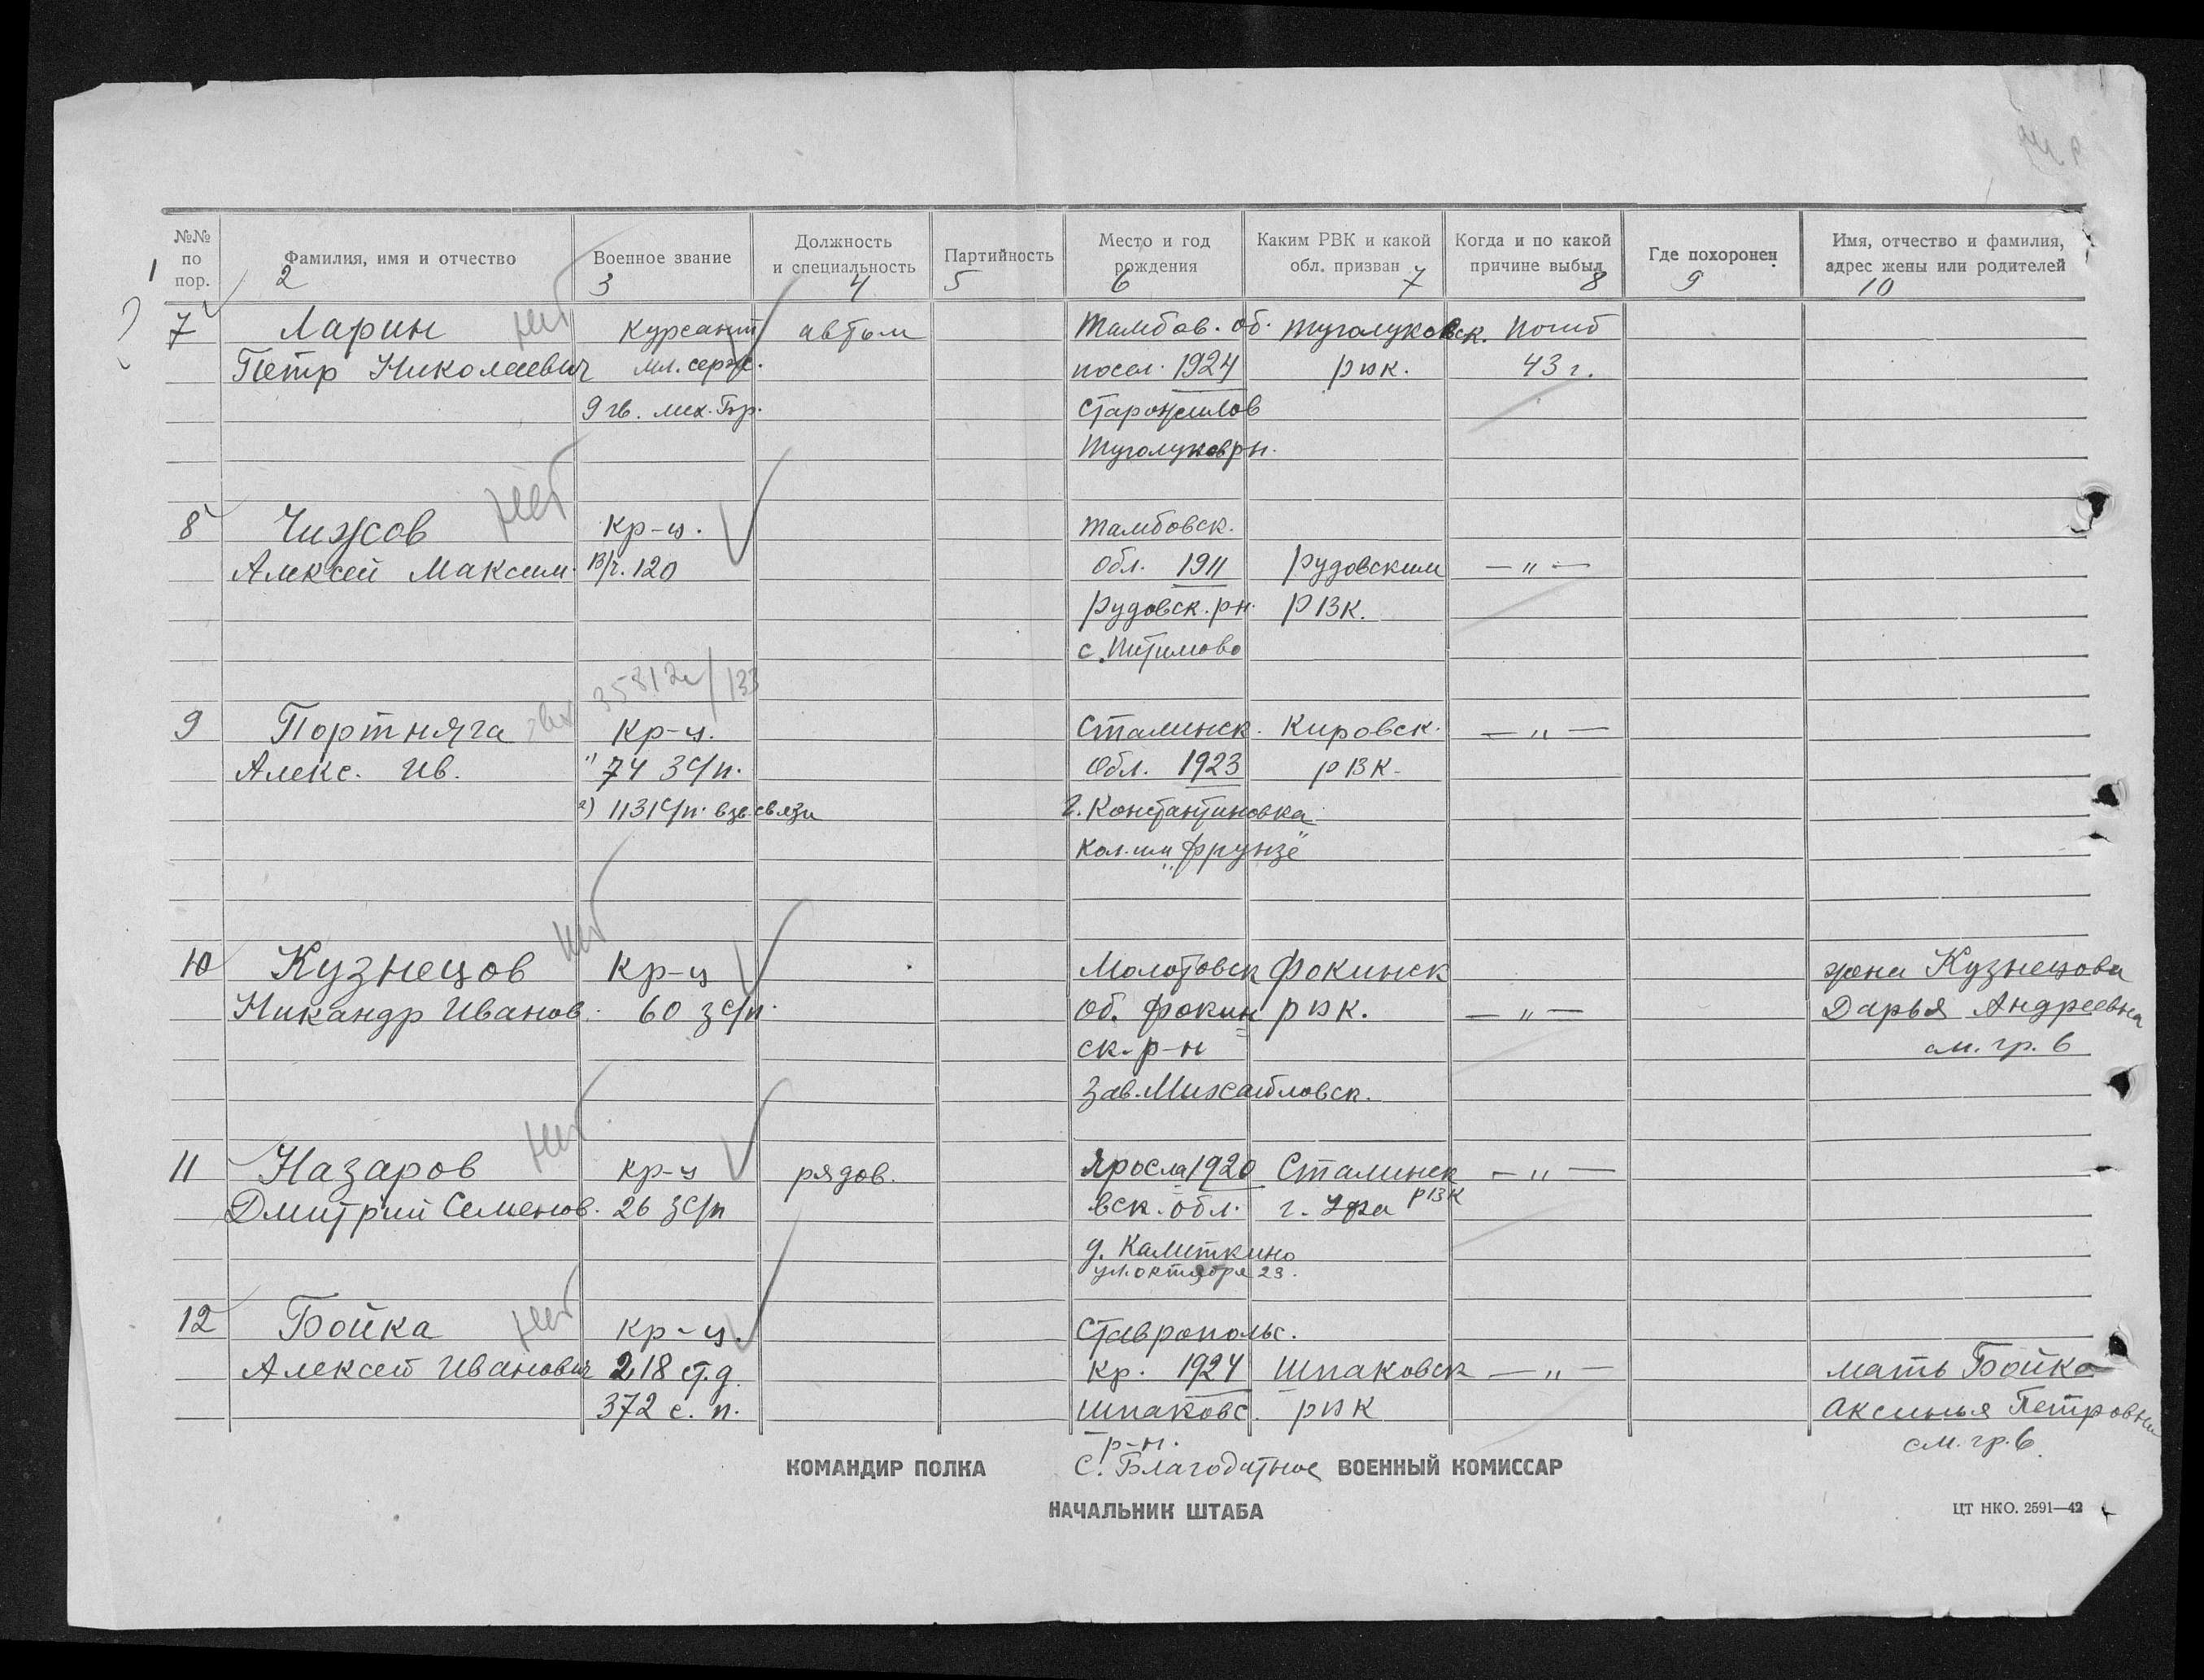 №№ по пор.
Фамилия, имя и отчество
Военное звание
Должность и специальность
Партийность
Место и год рождения
Каким РВК и какой обл. призван
Когда и по какой причине выбыл
Где похоронен
Имя, отчество и фамилия, адрес жены или родителей
1 2 3 4 5 6 7 8 9 10
7 Ларин нет курсант автом Тамбов. об. Туголуковск. Погиб
Петр Николаевич мл. серж. посел. 1924 рвк. 43 г.
9 гв. мех. бр. Старожилов
Туголуков р-н.
8 Чижов нет кр-ц. Тамбовск.
Алексей Максим. в/ч. 120 обл. 1911 Рудовским — " —
Рудовск. р-н. РВК.
с.
35812 /133
9 Портняга кр-ц. Сталинск. Кировск. — " —
Алекс. Ив. " 74 зс/п. обл. 1923 рвк.
2) 1131 с/п. взв. связи г. Константиновка
Кол. им "Фрунзе"
10 Кузнецов нет кр-ц Молотовск Фокинск жена Кузнецова
Никандр Иванов. 60 зс/п. об. Фокин рвк. — " — Дарья Андреевна
ск. р-н см. гр. 6
Зав. Михайловск.
11 Назаров нет кр-ц рядов. Яросла 1920 Сталинск — " —
Дмитрий Семенов. 26 зс/п вск. обл. г. Уфа РВК
д. Калиткино
ул. октября 23.
12 Бойка нет кр-ц. Ставрополь.
Алексей Иванович 218 с.д. кр. 1924 Шпаковск — " — мать Бойка
372 с. п. Шпаковс. рвк Аксинья Петровна
р-н. см. гр. 6
КОМАНДИР ПОЛКА с. Благодатное ВОЕННЫЙ КОМИССАР
НАЧАЛЬНИК ШТАБА
ЦТ НКО. 2591—42